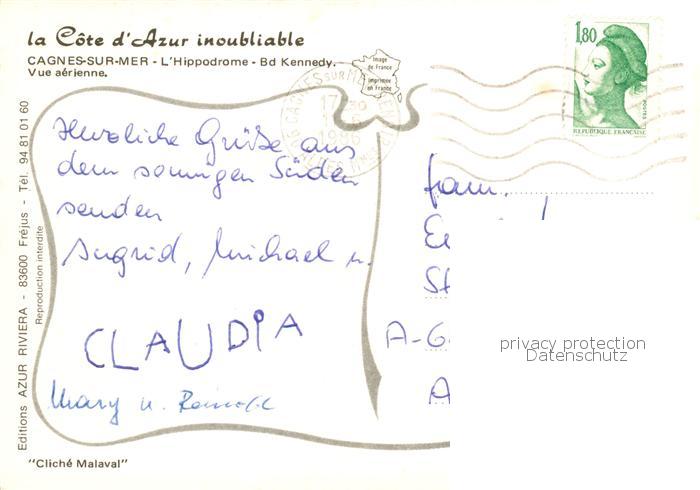 la Côte d'Azur inoubliable
CAGNES-SUR-MER - L'Hippodrome - Bd Kennedy.
Vue aérienne.
Image
de France
imprimée
en France
CAGNES SUR M
17 30
1,80
POSTES
REPUBLIQUE FRANÇAISE
Herzliche Grüße aus
dem sonnigen Süden
senden
Ingrid, Michael u.
CLAUDIA
Mary u.
Fam.
St
A-G
A
privacy protection
Datenschutz
Editions AZUR RIVIERA - 83600 Fréjus - Tél. 94 81 01 60
Reproduction interdite
"Cliché Malaval"